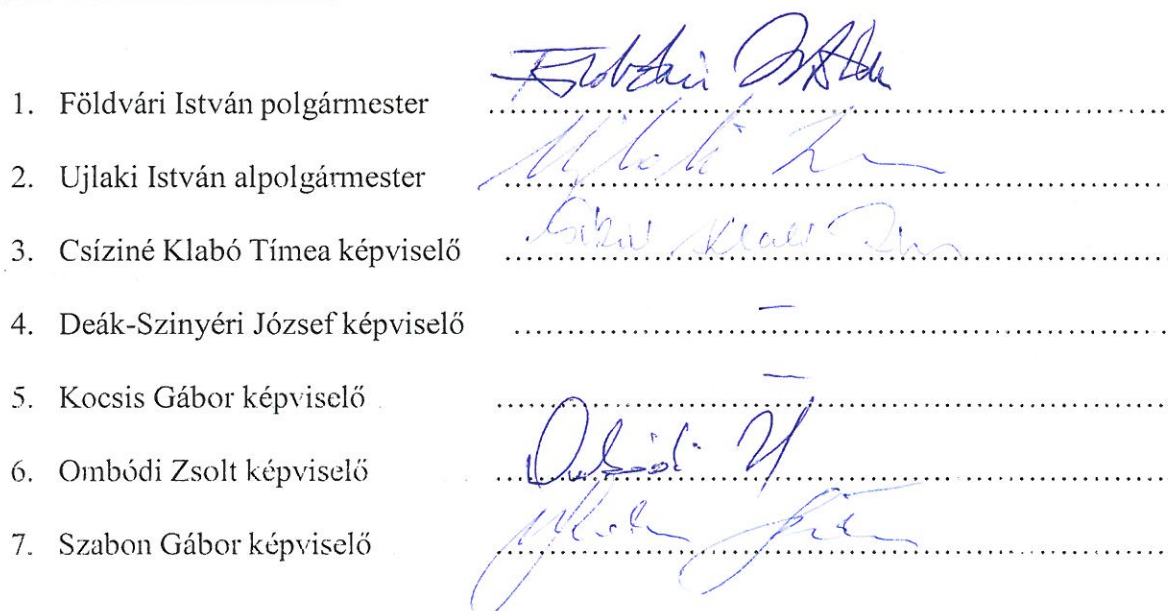 1. Földvári István polgármester ........................ Földvári István
2. Ujlaki István alpolgármester ........................ Ujlaki
3. Csíziné Klabó Tímea képviselő ........................
4. Deák-Szinyéri József képviselő ........................ –
5. Kocsis Gábor képviselő ........................ –
6. Ombódi Zsolt képviselő ........................ Ombódi
7. Szabon Gábor képviselő ........................